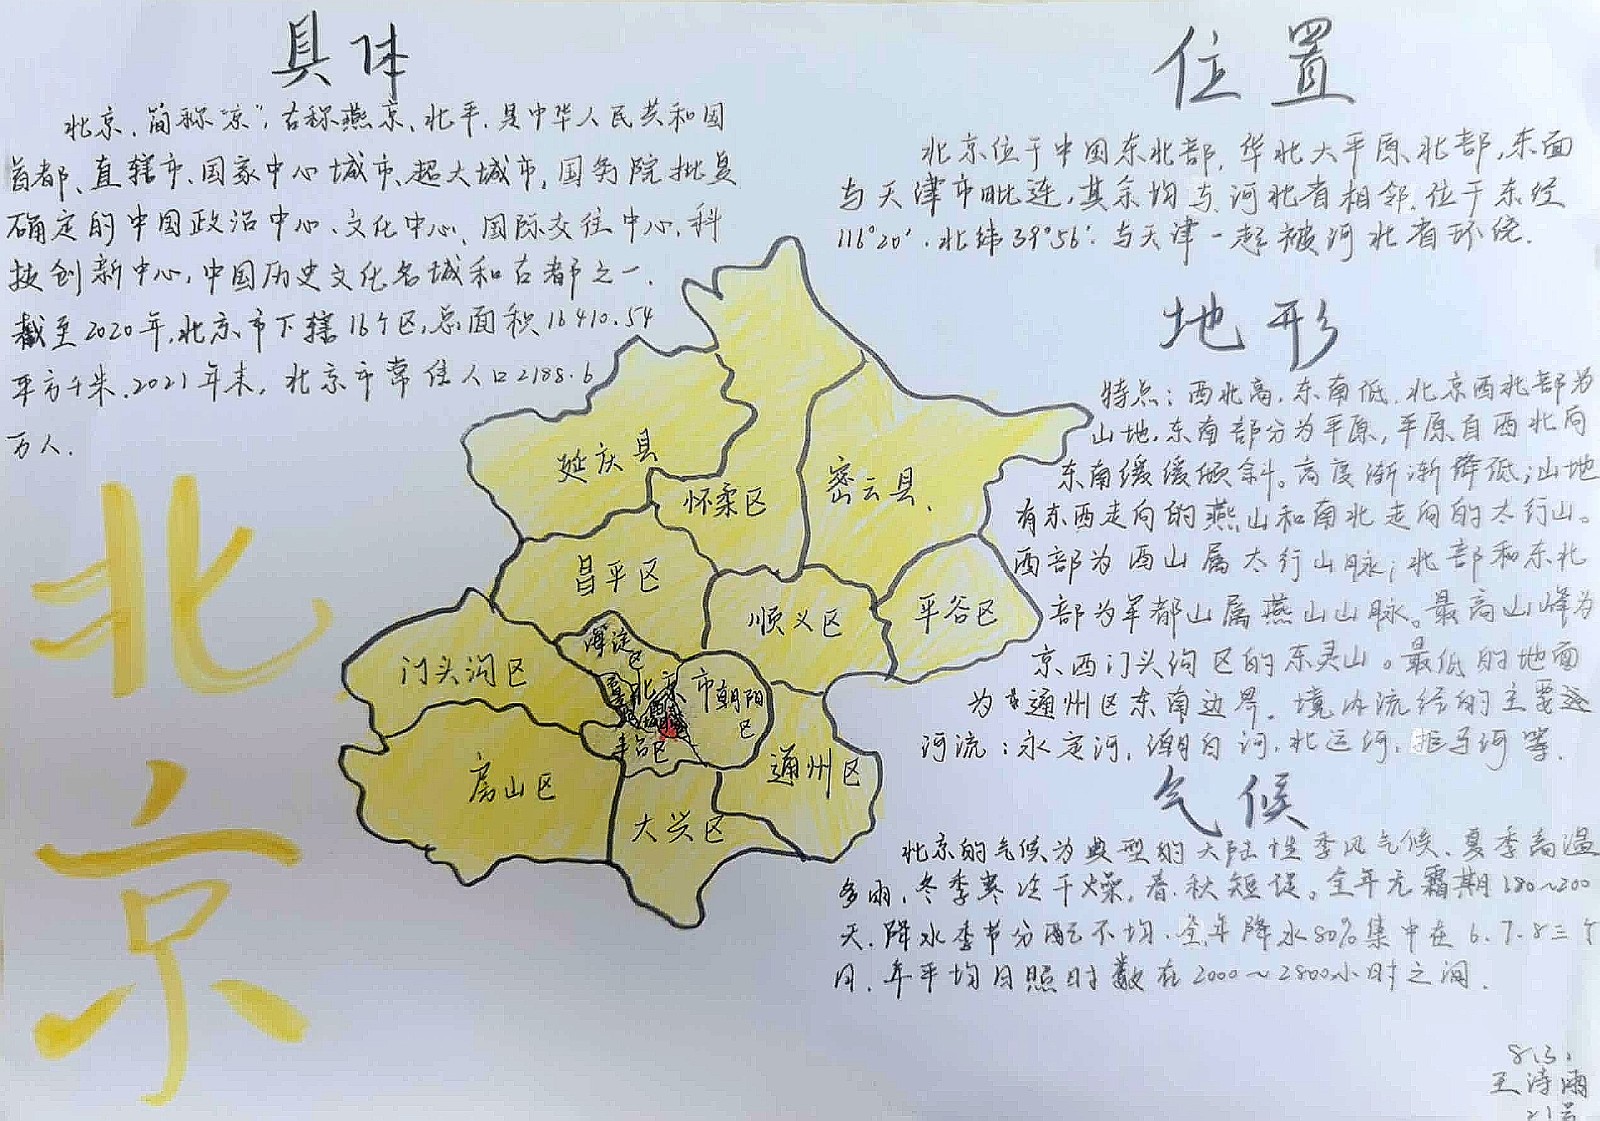 具体
北京，简称"京"，古称燕京、北平，是中华人民共和国
首都、直辖市、国家中心城市、超大城市，国务院批复
确定的中国政治中心、文化中心、国际交往中心、科
技创新中心，中国历史文化名城和古都之一.
截至2020年，北京市下辖16个区，总面积16410.54
平方千米.2021年末，北京市常住人口2188.6
万人.
位置
北京位于中国东北部，华北大平原北部，东面
与天津市毗连，其余均与河北省相邻.位于东经
116°20′.北纬39°56′.与天津一起被河北省环绕.
地形
特点：西北高，东南低.北京西北部为
山地，东南部分为平原，平原自西北向
东南缓缓倾斜。高度渐渐降低；山地
有东西走向的燕山和南北走向的太行山。
西部为西山属太行山脉；北部和东北
部为军都山属燕山山脉。最高山峰为
京西门头沟区的东灵山。最低的地面
为通州区东南边界。境内流经的主要
河流：永定河，潮白河，北运河，拒马河等.
气候
北京的气候为典型的大陆性季风气候、夏季高温
多雨，冬季寒冷干燥，春.秋短促。全年无霜期180~200
天.降水季节分配不均.全年降水80%集中在6.7.8三个
月.年平均日照时数在2000~2800小时之间.
延庆县
怀柔区
密云县
昌平区
顺义区
平谷区
海淀区
门头沟区
北京市
朝阳区
丰台区
房山区
大兴区
通州区
北京
8.3.
王诗雨
21号